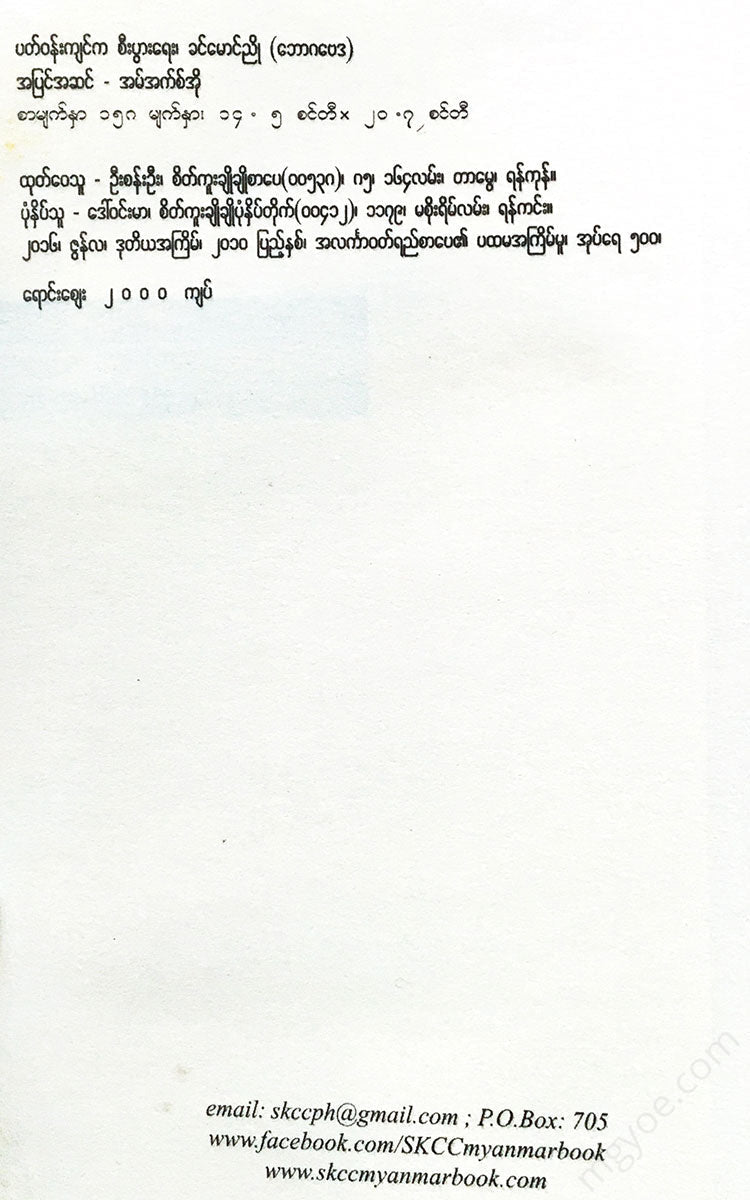 ပတ်ဝန်းကျင်က စီးပွားရေး၊ ခင်မောင်ညို (ဘောဂဗေဒ)
အပြင်အဆင် - အမ်အက်စ်အို
စာမျက်နှာ ၁၅၈ မျက်နှာ၊ ၁၄ . ၅ စင်တီ x ၂၀ .၇ စင်တီ
ထုတ်ဝေသူ - ဦးစန်းဦး၊ စိတ်ကူးချိုချိုစာပေ(၀၀၅၃၈)၊ ၈၅၊ ၁၆၄လမ်း၊ တာမွေ၊ ရန်ကုန်။
ပုံနှိပ်သူ - ဒေါ်ဝင်းမာ၊ စိတ်ကူးချိုချိုပုံနှိပ်တိုက်(၀၀၄၁၂)၊ ၁၁၇၉၊ မစိုးရိမ်လမ်း၊ ရန်ကင်း။
၂၀၁၆၊ ဇွန်လ၊ ဒုတိယအကြိမ်၊ ၂၀၁၀ ပြည့်နှစ်၊ အလင်္ကာဝတ်ရည်စာပေ၏ ပထမအကြိမ်မူ၊ အုပ်ရေ ၅၀၀၊
ရောင်းဈေး ၂ ၀ ၀ ၀ ကျပ်
email: skccph@gmail.com ; P.O.Box: 705
www.facebook.com/SKCCmyanmarbook
www.skccmyanmarbook.com
mgyoe.com